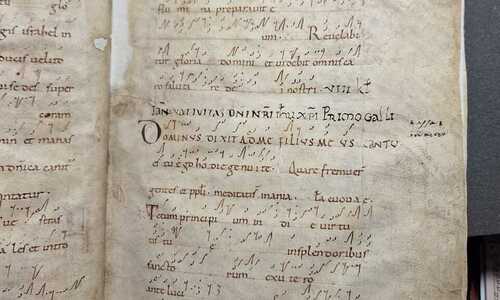 glo
gis israhel in
ducis uelito
super
conam
ni et manas
tatur
setas
ales et intro
flu mi na preparauit e
um Reuelabi
tur gloria domini et uidebit omnis ca
ro saluta re de i nostri VIII kl
IAN NATIVITAS DNI NRI IHU XPI PRIMO GALLI
DOMINUS DIXIT AD ME FILIUS ME US CANTU
es tu ego ho di e ge nui te Quare fremuer
gentes et ppli meditati s mania EUOUAE
Tecum principi um in di e uirtu
tis tu in splendoribus
sancto rum ex u te ro
ante luci